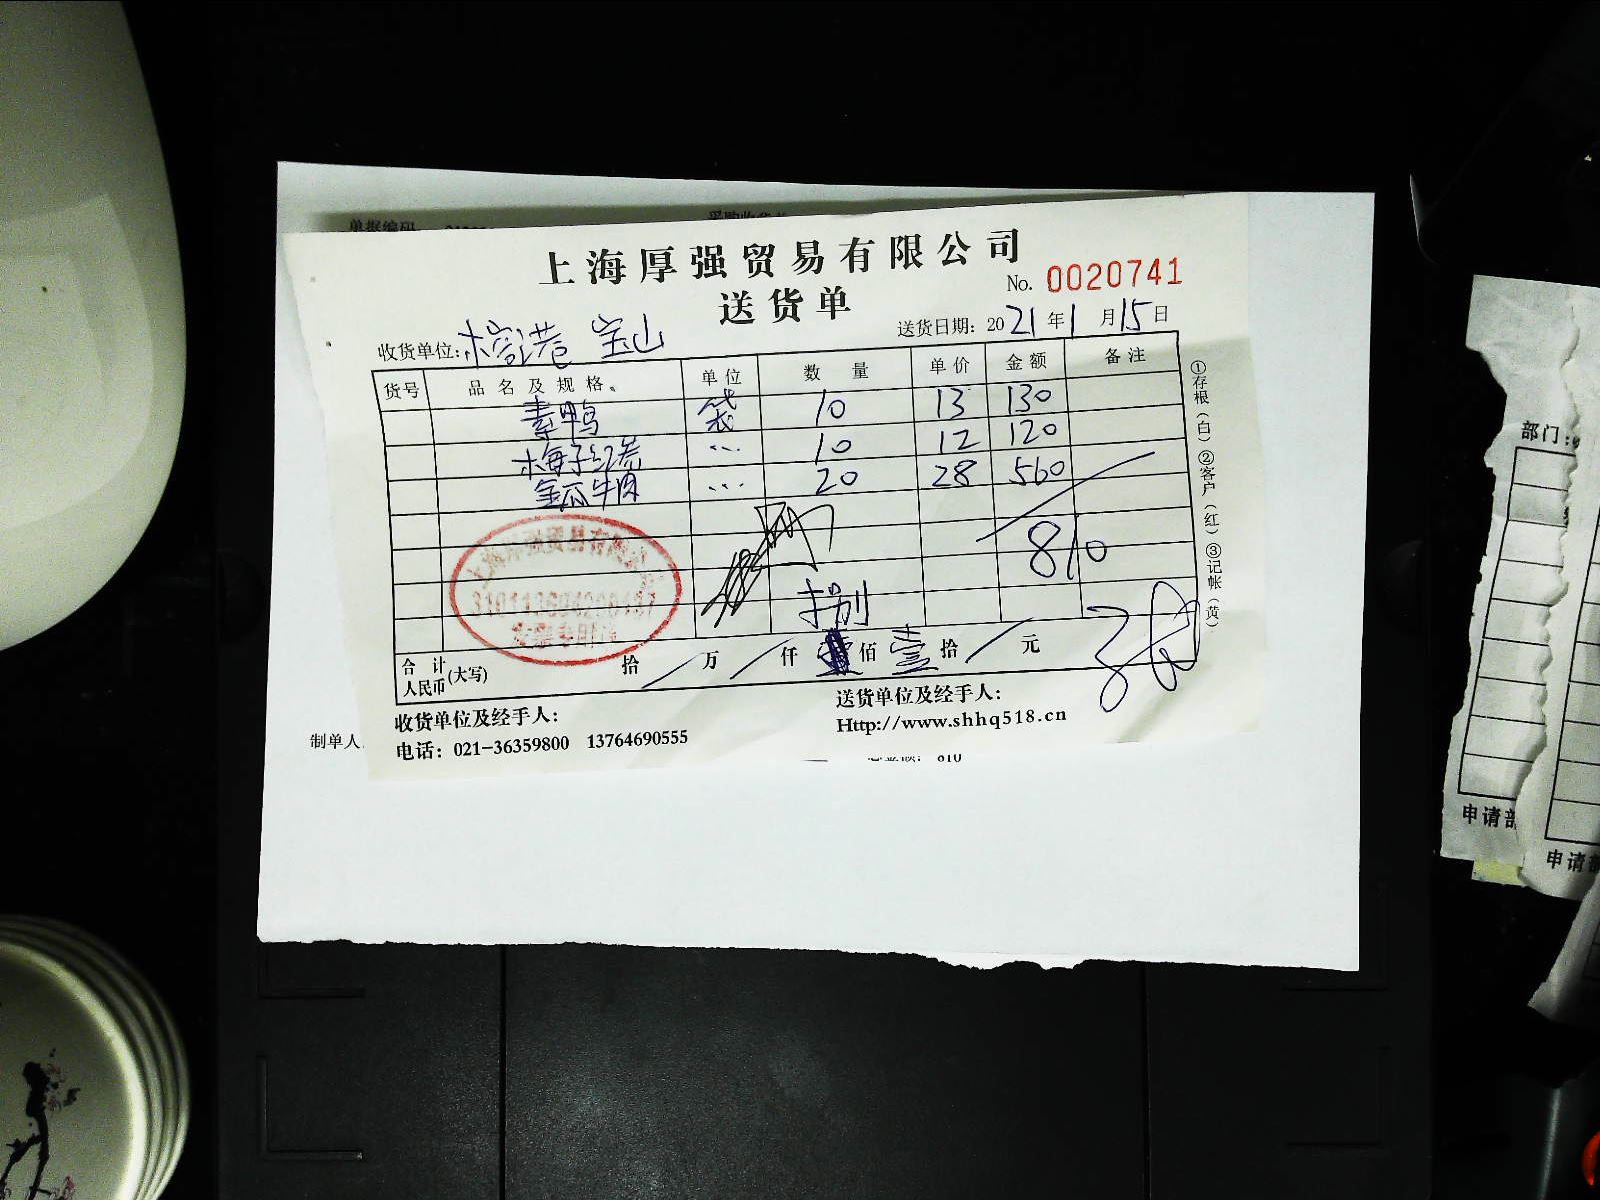 单据编码
上海厚强贸易有限公司
送货单
No. 0020741
收货单位: 榕港 宝山
送货日期: 2021年1月15日
货号 品名及规格。 单位 数量 单价 金额 备注
素鸭 袋 10 13 130
梅子红枣 ... 10 12 120
金瓜牛肉 ... 20 28 560
810
捌
合计人民币(大写) 拾 / 万 / 仟 佰 壹 拾 / 元
①存根(白)②客户(红)③记帐(黄)
收货单位及经手人:
送货单位及经手人:
电话: 021-36359800 13764690555
Http://www.shhq518.cn
制单人
810
部门:
申请部
申请部